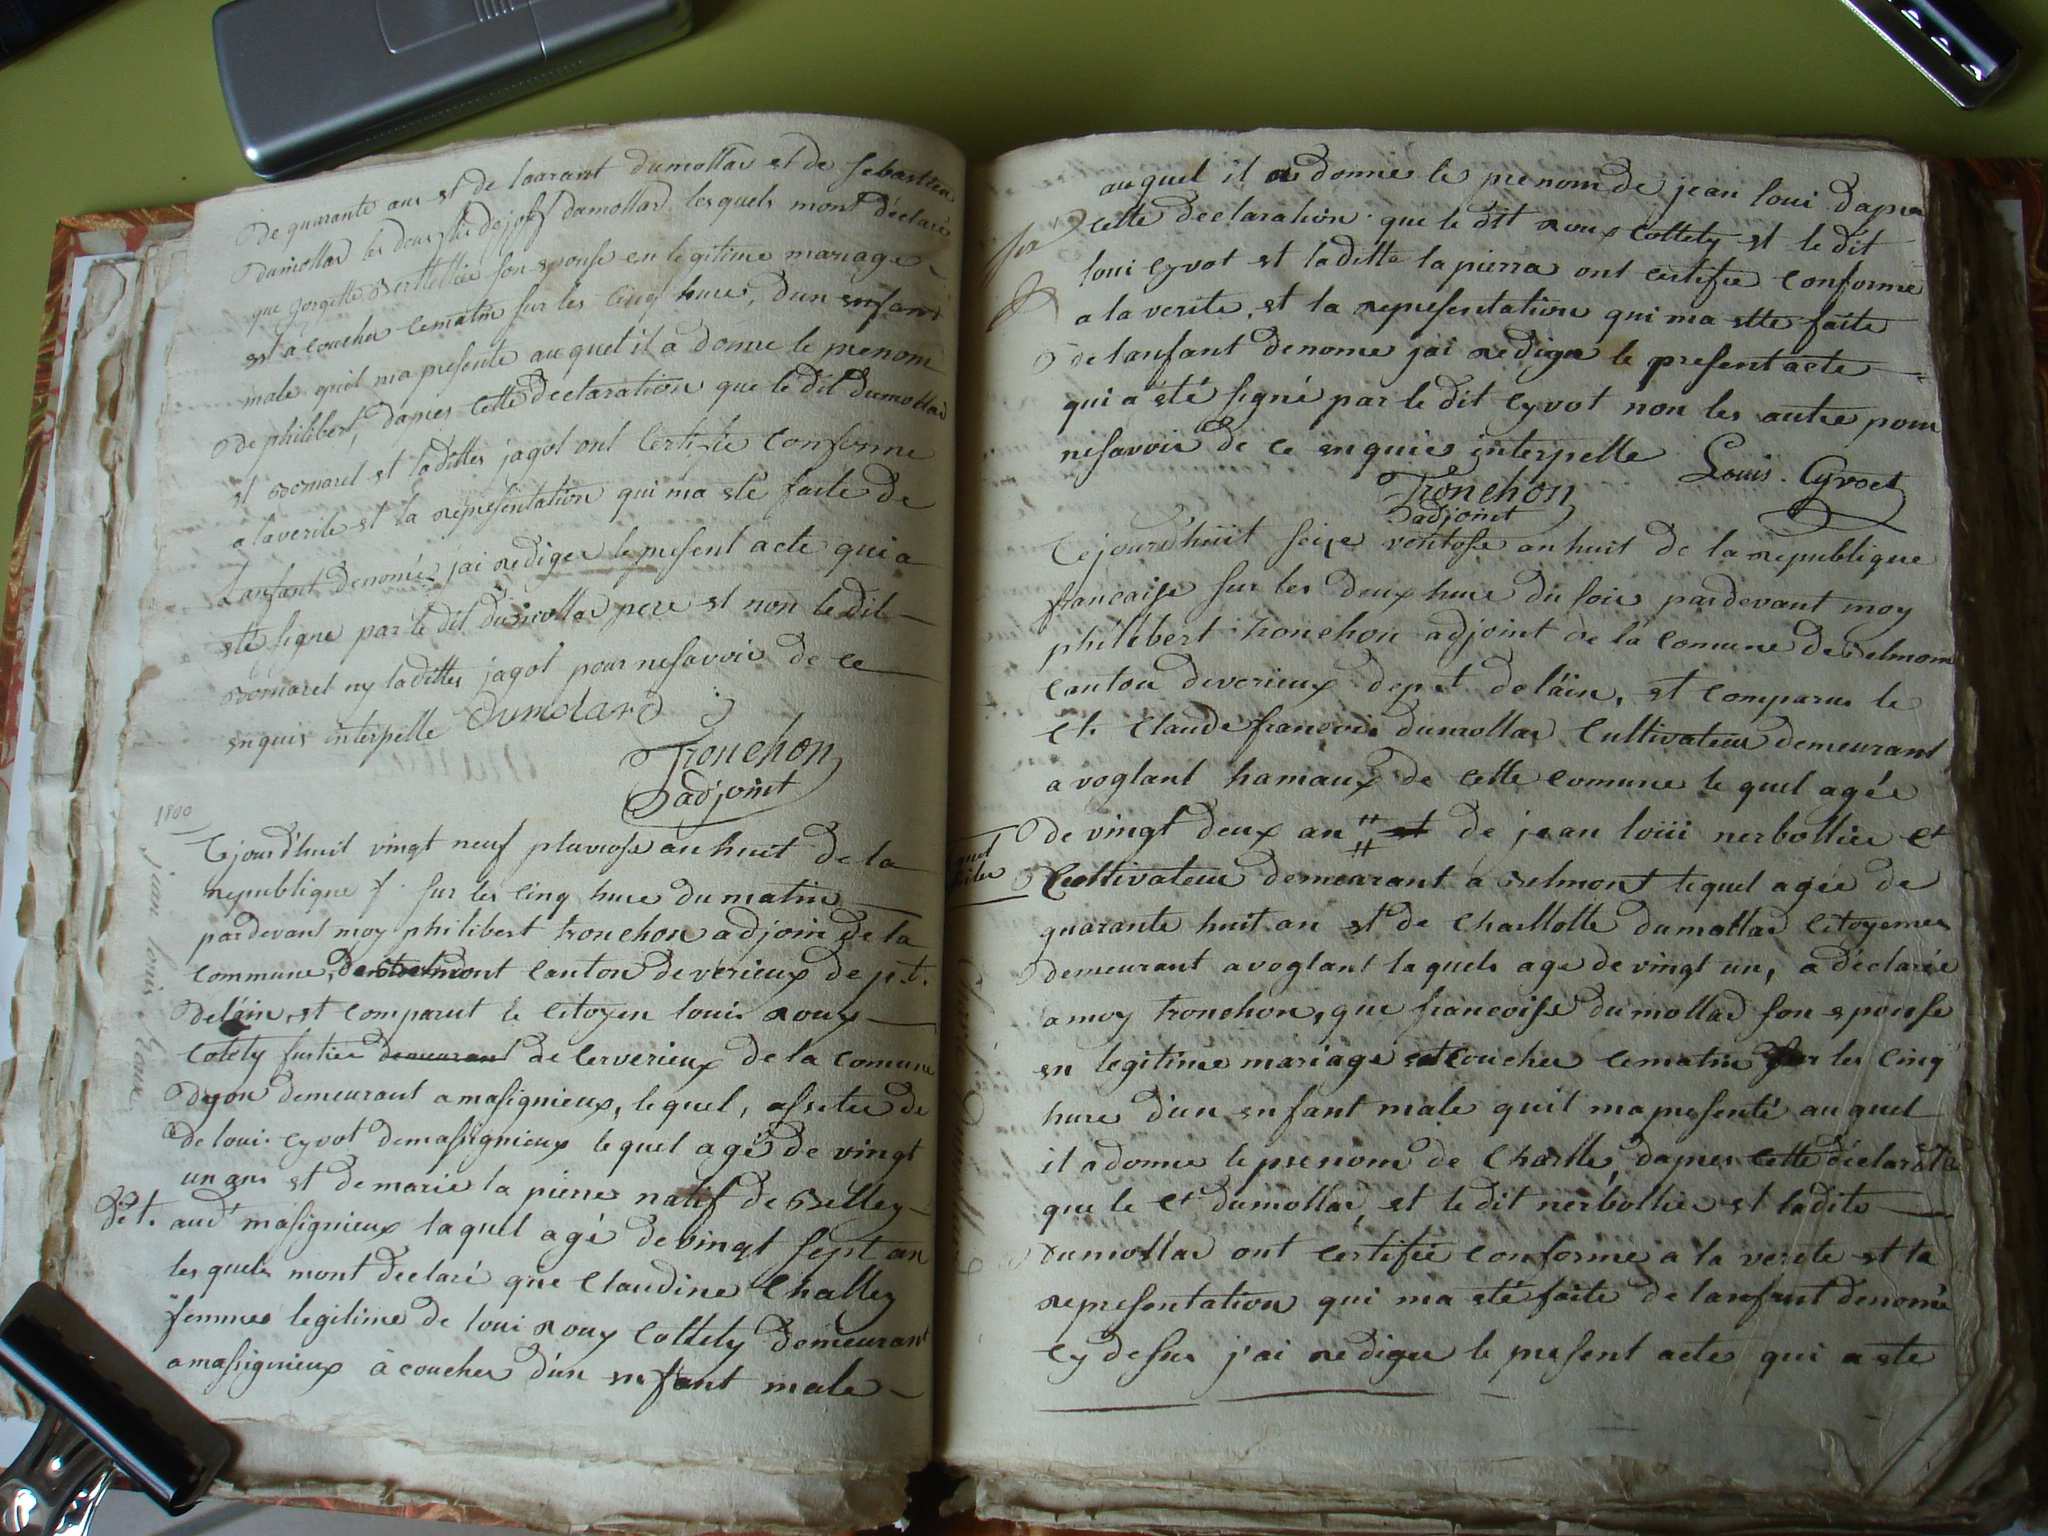 de quarante ans et de laarant dumollar et de sebastien
dumollar les deux fils de josef dumollar lesquels mont déclaré
que gorgette Berthellier son epouse en legitime mariage
est acoucher cematin sur les cinq hures, dun enfant
male quil ma presenté auquel il a donne le prenom
de philibert, dapres cette declaration que le dit dumollar
et Bomarel et laditte jagot ont certifie conforme
a laverite et la representation qui ma eté faite de
lanfant denomé jai rediger le present acte qui a
eté signe par le dit dumollar pere et non le dit
Bomarel ny laditte jagot pour nesavoir de ce
enquis interpelle Dumolard
Tronchon
adjoint
1800
jean louis Roux
Cejourdhuit vingt neuf pluviose an huit de la
republique f. sur les cinq hure du matin
pardevant moy philibert tronchon adjoin de la
commune de Belmont canton de verieux dept.
delain, et comparut le citoyen louis roux
Cotety demeurant de Cerverieux de la comune
dyon demeurant a masignieux, lequel, assiter de
de loui Cyvot demassignieux lequel agé de vingt
un ans et demarie la pierre natif de Belley
det. aud' masignieux laquel agé devingt sept an
lesquels mont declaré que Claudine Challey
femme legitime de loui roux Cottety demeurant
a massignieux à coucher d'un enfant male
auquel il a donnée le prenom de jean loui dapres
cette declaration que le dit roux Cottety et le dit
loui Cyvot et laditte la pierra ont certifie conforme
a la verite, et la representation qui ma ette faite
de lanfant denome jai rediger le present acte
qui a été signé par le dit Cyvot non les autre pour
nesavoir de ce enquies interpelle Louis Cyvoct
Tronchon
adjoint
Cejourdhuit seize ventose an huit de la republique
francaise sur les deux hure du soir pardevant moy
philibert tronchon adjoint de la comune de Belmon
canton deverieux dept. delain, et comparu le
Ct. Claude francois dumollar Cultivateur demeurant
a voglant hamaux de cette comune le quel agée
de vingt deux an et de jean loiii nerbollier Ct
Cultivateur demeurant à Belmont lequel agée de
quarante huit an et de Charllotte dumollar Citoyenne
demeurant a voglant laquels age de vingt un, a déclarée
a moy tronchon, que francoise dumollar son epouse
en legitime mariage est coucher cematin sur les cinq
hure d'un enfant male quil mapresenté auquel
il adonne le prenom de Charlle, dapres cette déclaration
que le Ct dumollar, et le dit nerbollier et ladite
dumollar ont certifiée conforme a la verite et la
representation qui ma eté faite de lanfant denomée
cy desus j'ai rediger le present acte qui a ete